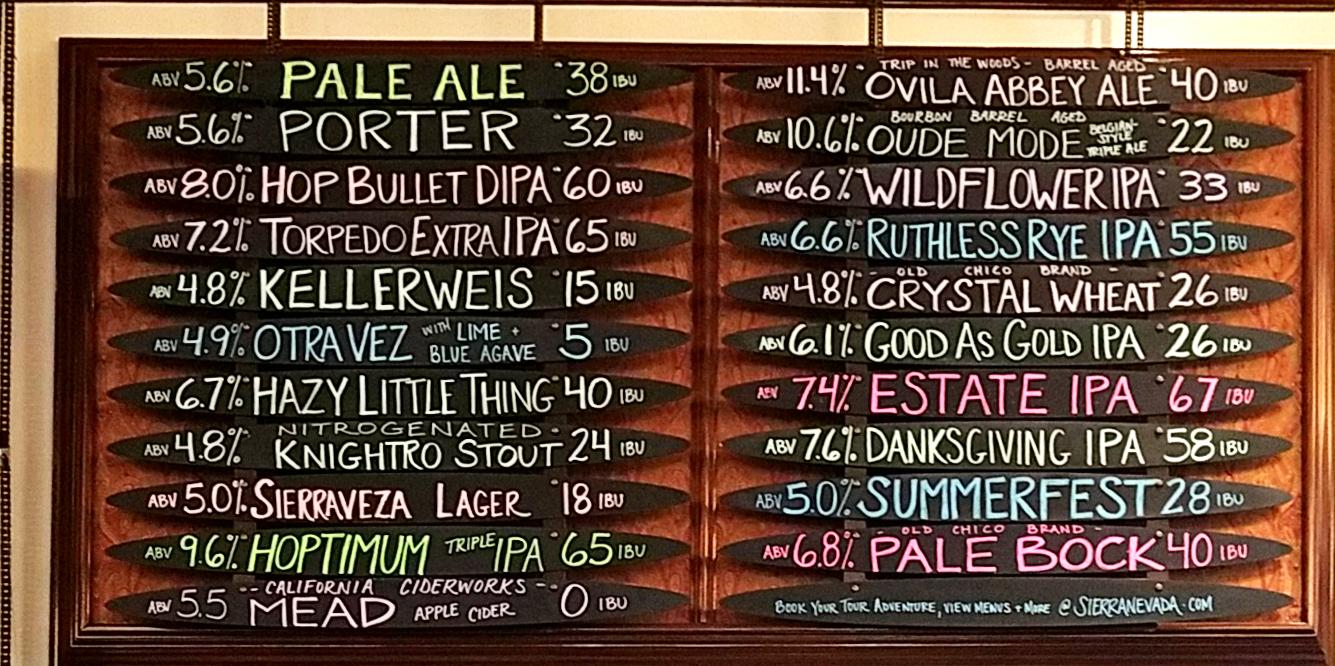 ABV 5.6% PALE ALE 38 IBU
ABV 5.6% PORTER 32 IBU
ABV 8.0% HOP BULLET DIPA 60 IBU
ABV 7.2% TORPEDO EXTRA IPA 65 IBU
ABV 4.8% KELLERWEIS 15 IBU
ABV 4.9% OTRA VEZ WITH LIME + BLUE AGAVE 5 IBU
ABV 6.7% HAZY LITTLE THING 40 IBU
NITROGENATED
ABV 4.8% KNIGHTRO STOUT 24 IBU
ABV 5.0% SIERRAVEZA LAGER 18 IBU
ABV 9.6% HOPTIMUM TRIPLE IPA 65 IBU
-- CALIFORNIA CIDERWORKS --
ABV 5.5 MEAD APPLE CIDER 0 IBU
TRIP IN THE WOODS - BARREL AGED
ABV 11.4% OVILA ABBEY ALE 40 IBU
BOURBON BARREL AGED
ABV 10.6% OUDE MODE BELGIAN-STYLE TRIPLE ALE 22 IBU
ABV 6.6% WILDFLOWER IPA 33 IBU
ABV 6.6% RUTHLESS RYE IPA 55 IBU
- OLD CHICO BRAND -
ABV 4.8% CRYSTAL WHEAT 26 IBU
ABV 6.1% GOOD AS GOLD IPA 26 IBU
ABV 7.4% ESTATE IPA 67 IBU
ABV 7.6% DANKSGIVING IPA 58 IBU
ABV 5.0% SUMMERFEST 28 IBU
- OLD CHICO BRAND -
ABV 6.8% PALE BOCK 40 IBU
BOOK YOUR TOUR ADVENTURE, VIEW MENUS + MORE @ SIERRANEVADA.COM